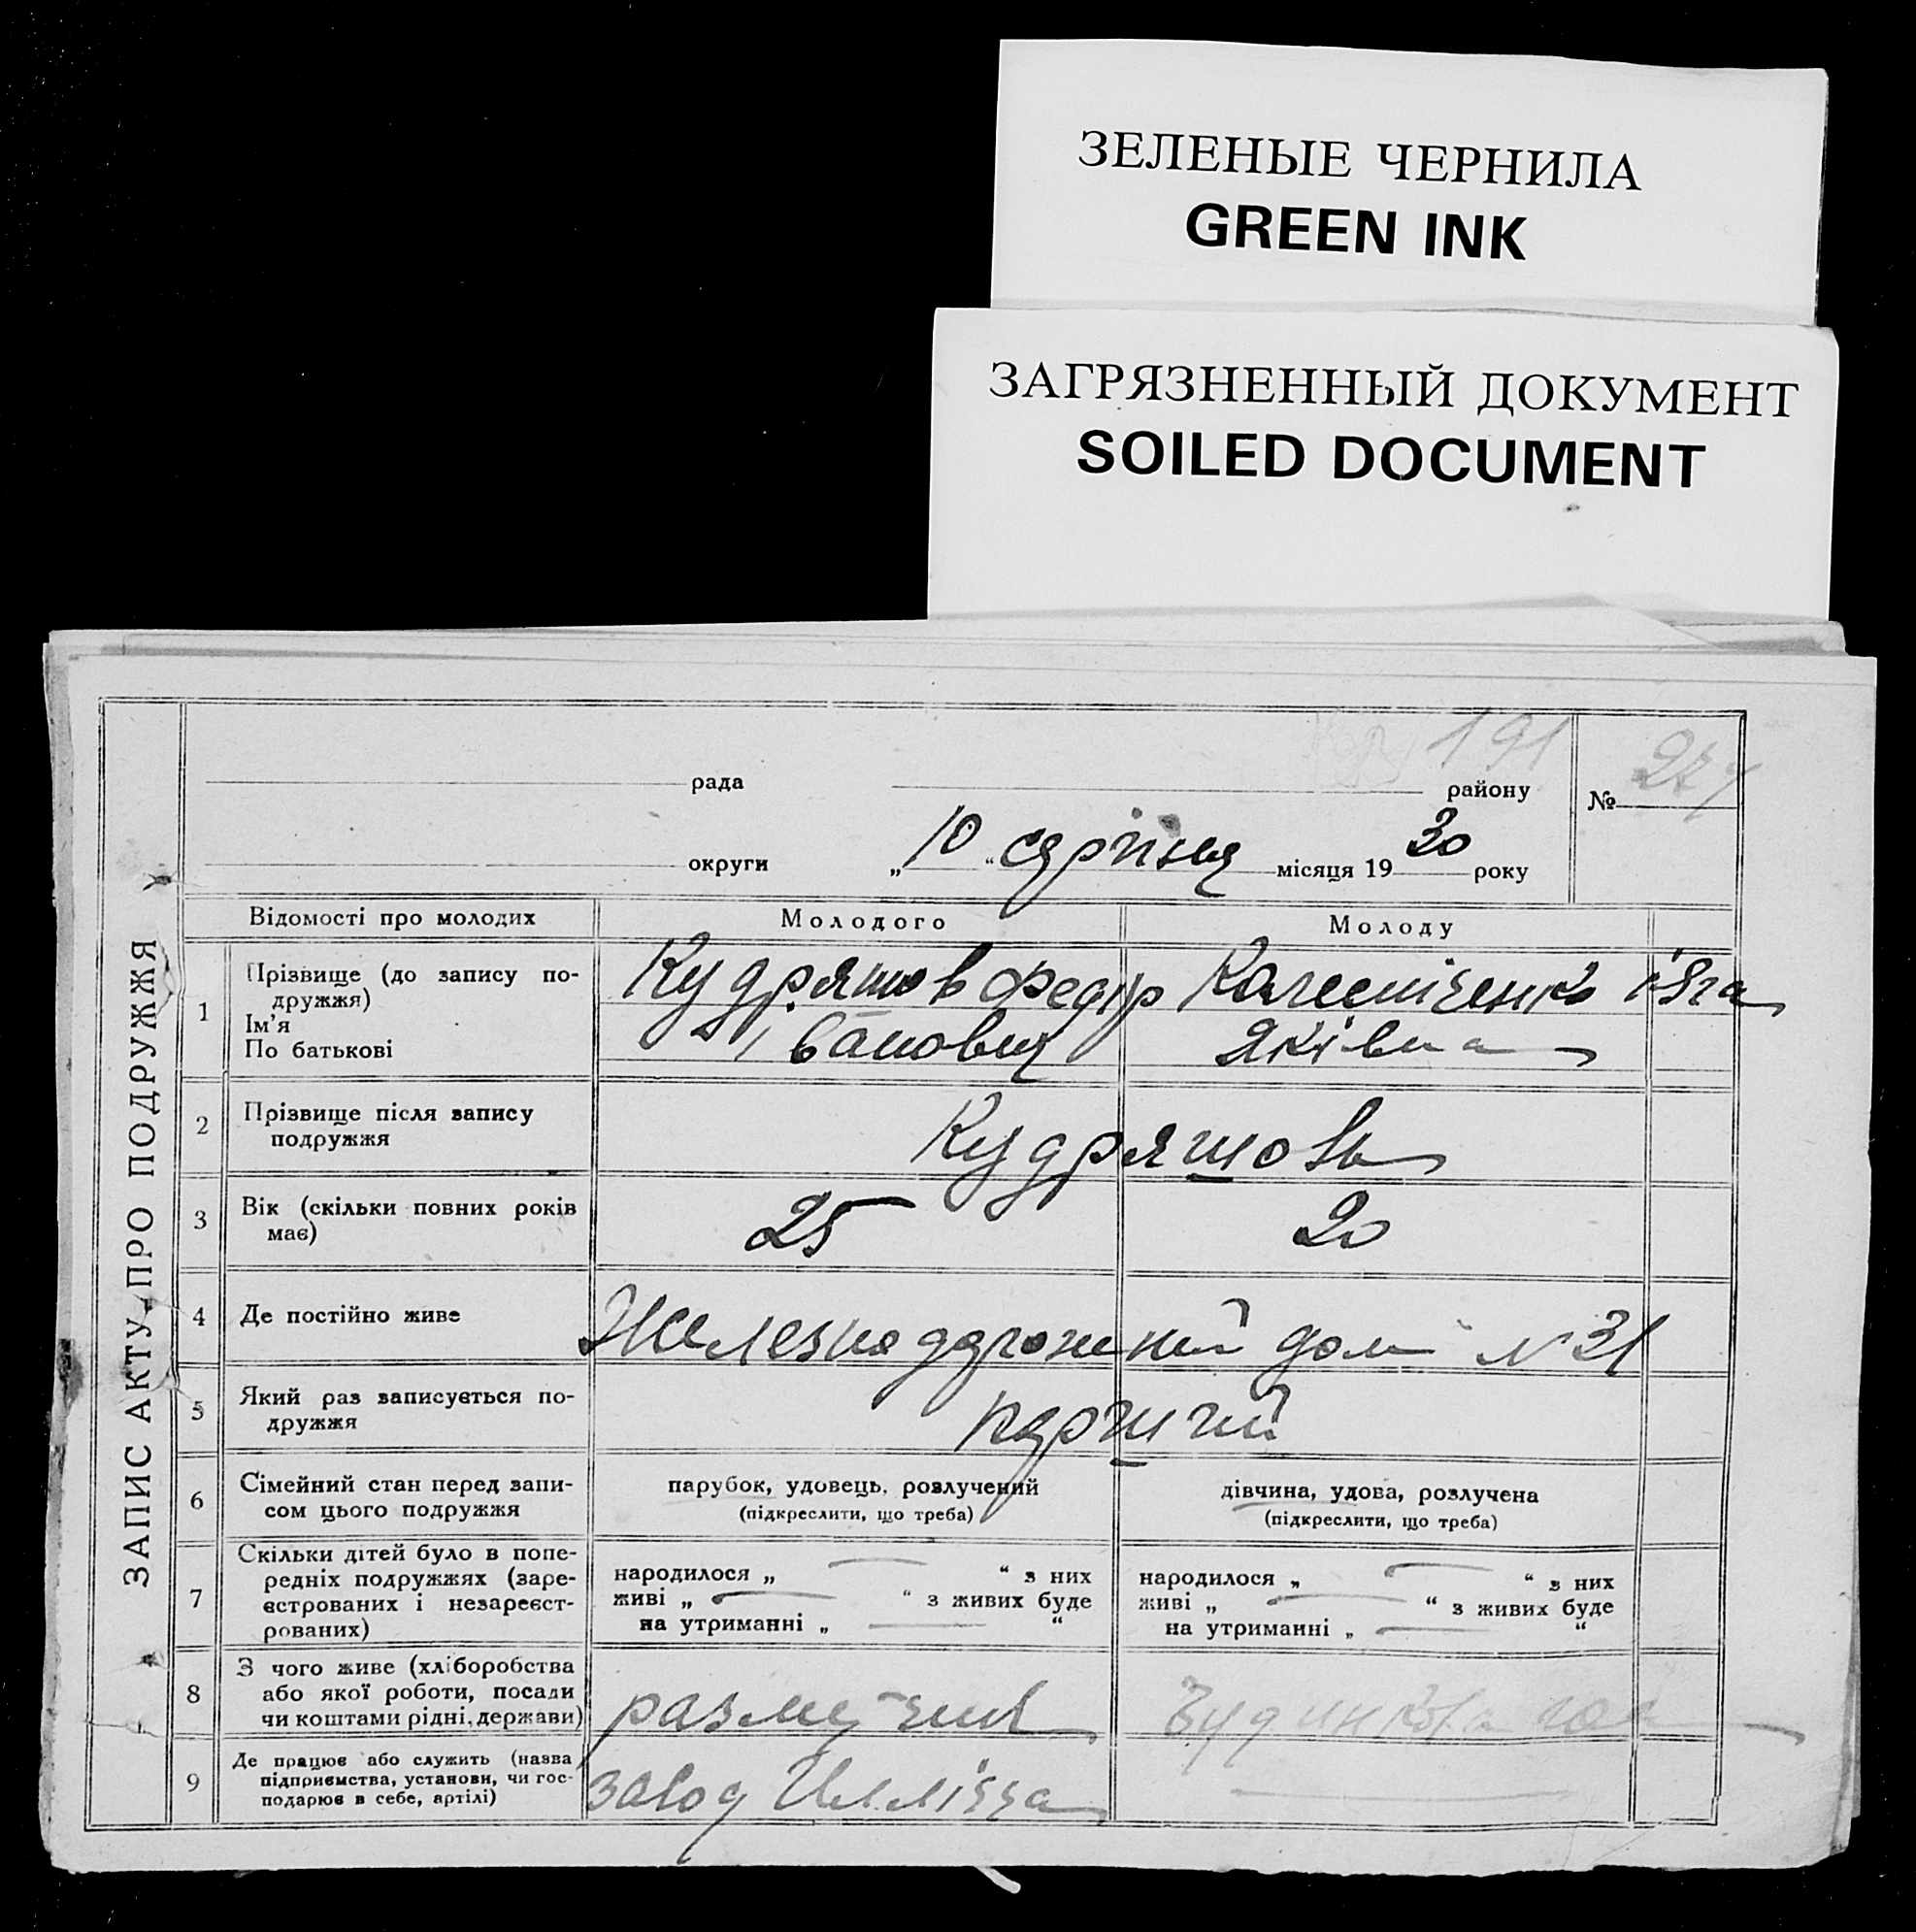 ЗЕЛЕНЫЕ ЧЕРНИЛА
GREEN INK
ЗАГРЯЗНЕННЫЙ ДОКУМЕНТ
SOILED DOCUMENT
ЗАПИС АКТУ ПРО ПОДРУЖЖЯ
191
рада району № 227
округи „10“ серпня місяця 1930 року
Відомості про молодих Молодого Молоду
1 Прізвище (до запису по-
дружжя)
Ім'я
По батькові
Кудряшов Федір
Іванович
Колесніченко
Яківна
2 Прізвище після запису
подружжя
Кудряшови
3 Вік (скільки повних років
має)
25 20
4 Де постійно живе
Железнодорожний дом № 31
5 Який раз записується по-
дружжя
перший
6 Сімейний стан перед запи-
сом цього подружжя
парубок, удовець, розлучений
(підкреслити, що треба)
дівчина, удова, розлучена
(підкреслити, що треба)
7 Скільки дітей було в попе-
редніх подружжях (заре-
єстрованих і незареєст-
рованих)
народилося „ — “ з них
живі „ — “ з живих буде
на утриманні „ — “
народилося „ — “ з них
живі „ — “ з живих буде
на утриманні „ — “
8 З чого живе (хліборобства
або якої роботи, посади
чи коштами рідні, держави)
размечик
9 Де працює або служить (назва
підприємства, установи, чи гос-
подарює в себе, артілі)
завод Ілліча
—